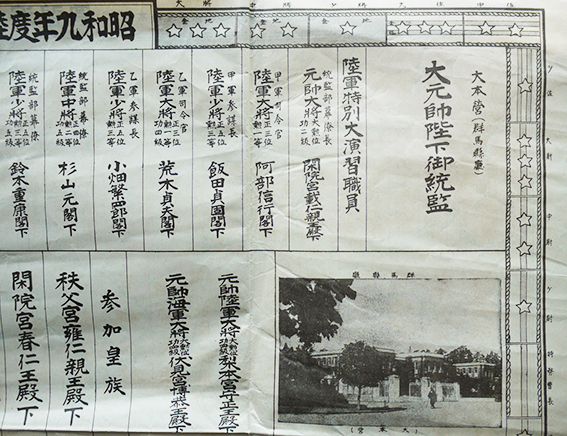 昭和九年度陸
大將
中將
少將
大佐
中佐
少佐
大尉
中尉
少尉
特務曹長
大本營(群馬縣廳)
大元帥陛下御統監
陸軍特別大演習職員
統監部幕僚長
元帥大將大勳位功二級 閑院宮載仁親王殿下
甲軍司令官
陸軍大將 阿部信行閣下
甲軍參謀長
陸軍少將 飯田貞固閣下
乙軍司令官
陸軍大將 荒木貞夫閣下
乙軍參謀長
陸軍少將 小畑敏四郎閣下
統監部幕僚
陸軍中將 杉山元閣下
統監部幕僚
陸軍少將 鈴木重康閣下
群馬縣廳
(大本營)
元帥陸軍大將大勳位功四級 梨本宮守正王殿下
元帥海軍大將大勳位功四級 伏見宮博恭王殿下
參加皇族
秩父宮雍仁親王殿下
閑院宮春仁王殿下